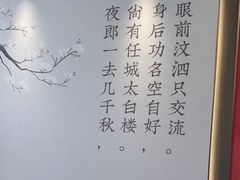 眼前汶泗只交流。
身后功名空自好，
尚有任城太白楼。
夜郎一去几千秋，